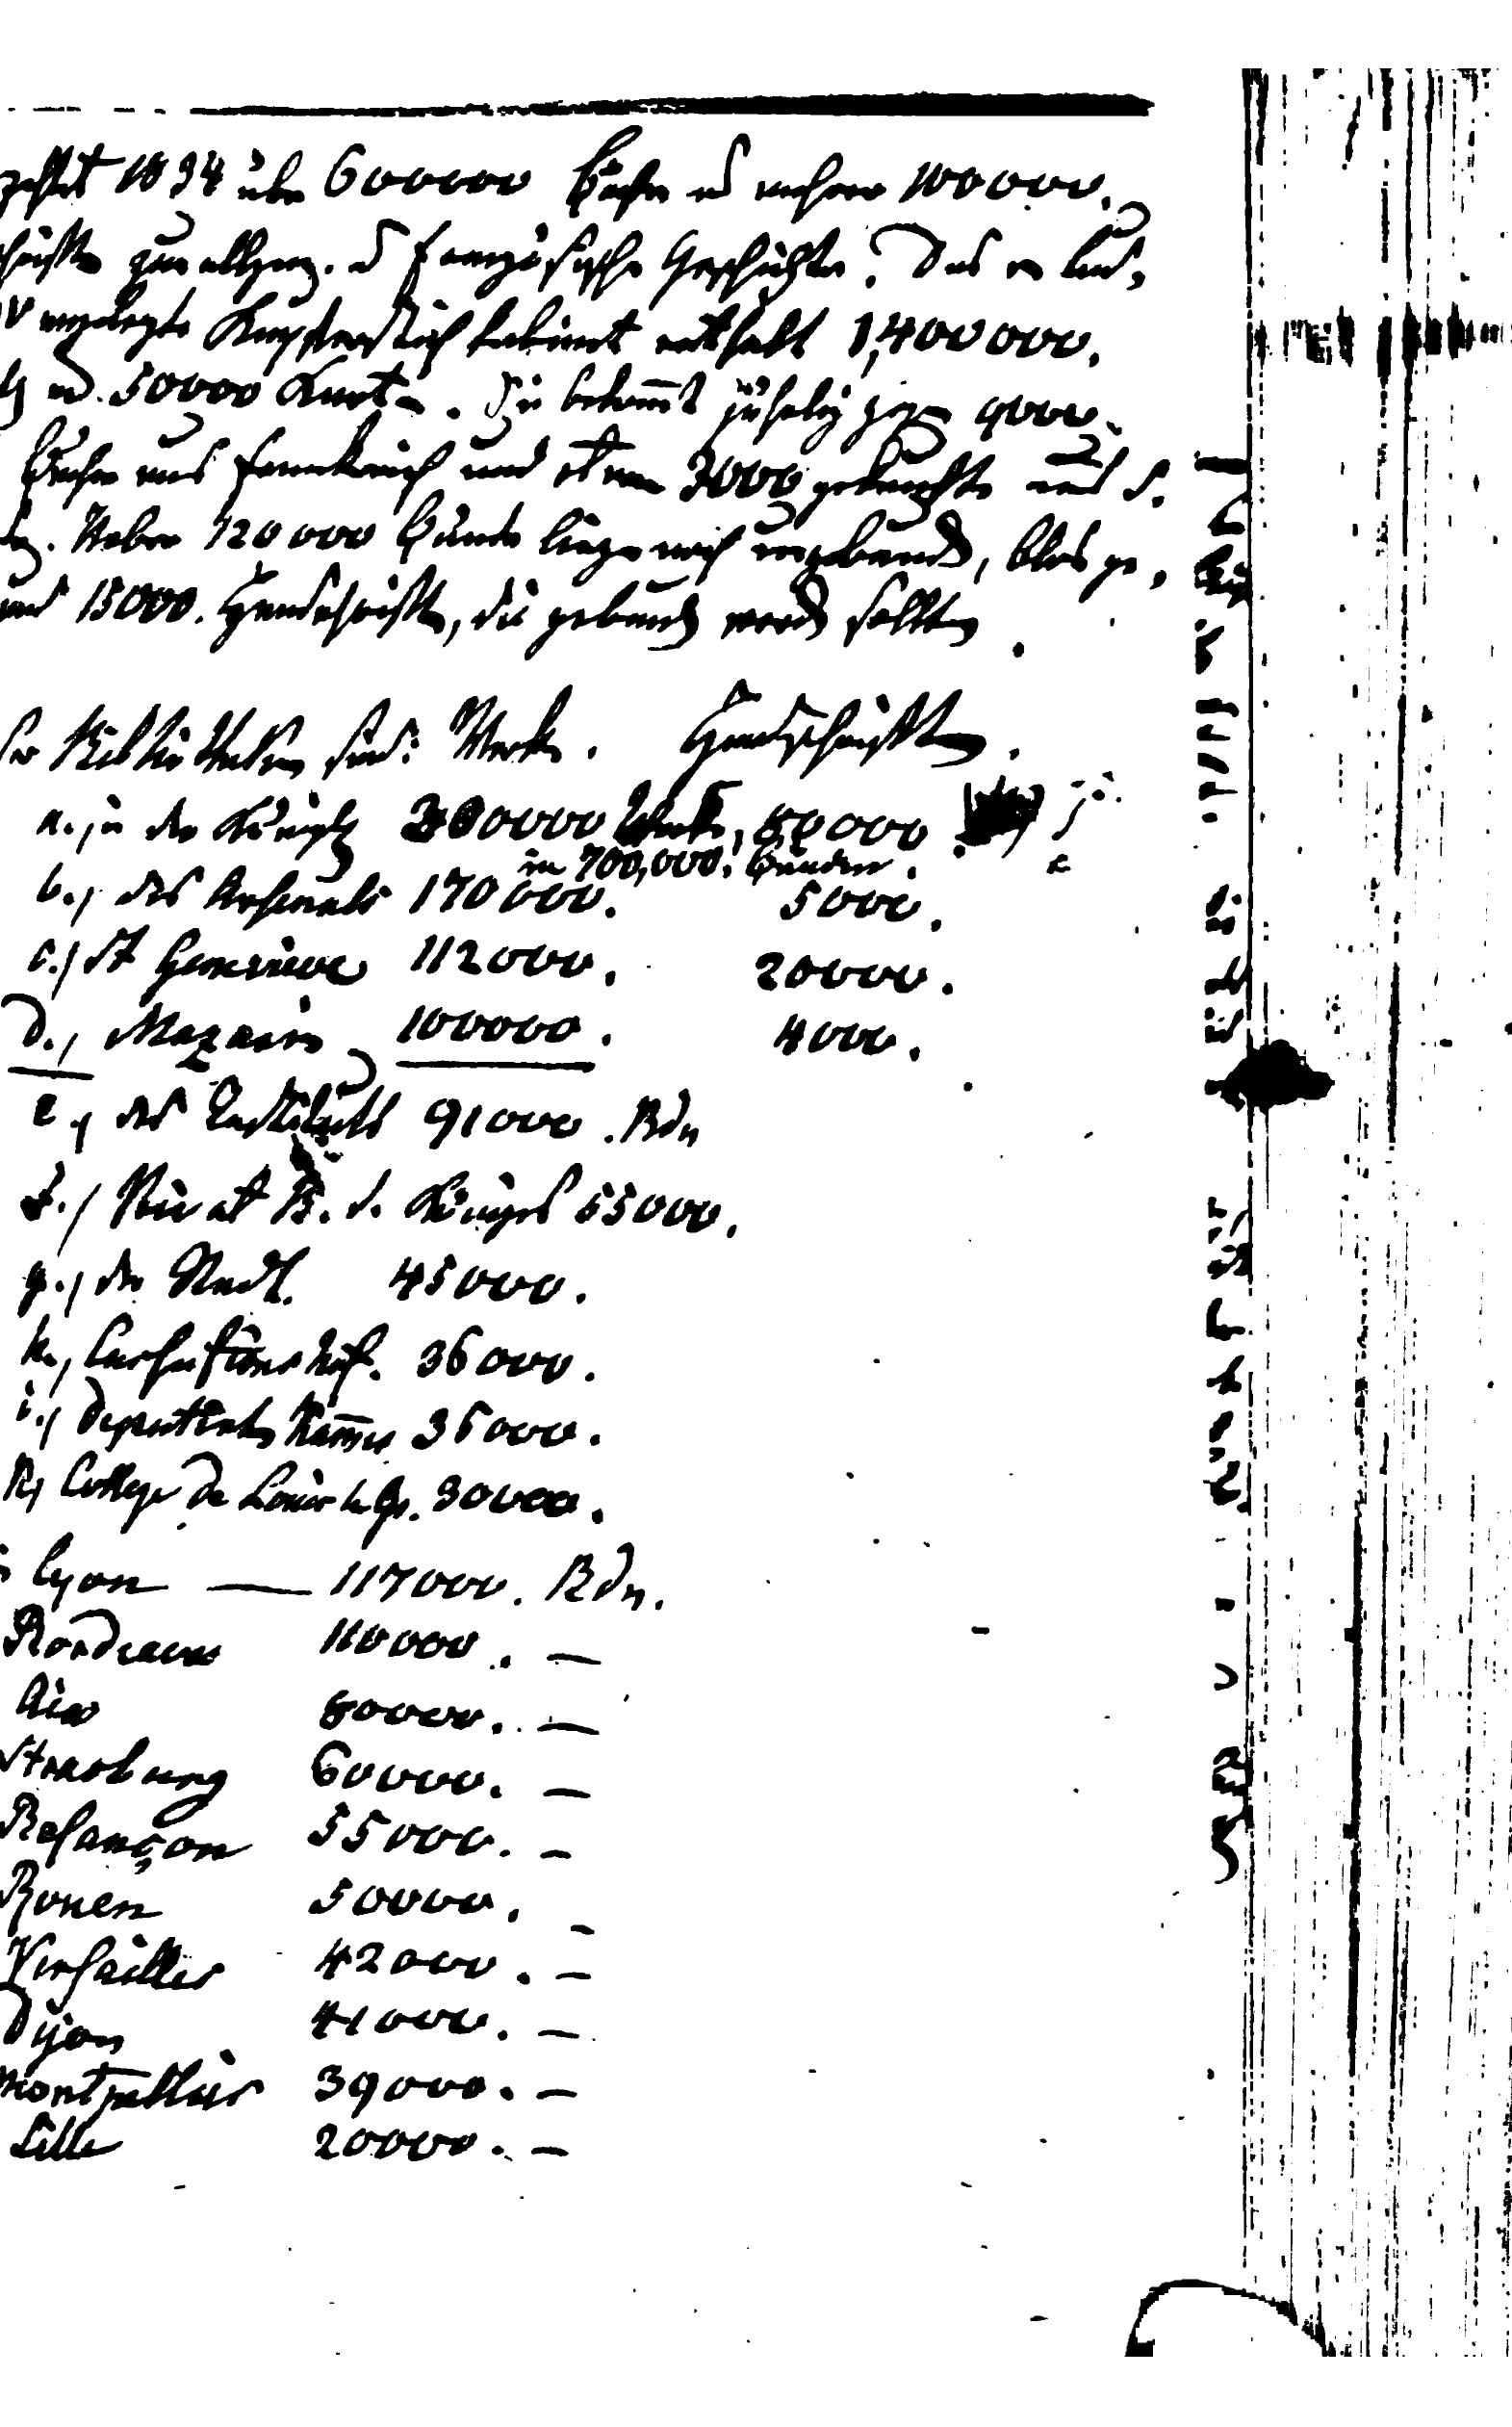 1834 über 600000 Bücher u mehrere 100000.
zur allgem. u französische Geschichte. Das in
Kupferstichkabinet enthält 1,400000.
50000 Karten. Sie bekommt jährlich gegen 9000.
Bücher aus Frankreich und etwa 3000 gebrachte aus d.
Ueber 120000 Bände liegen noch ungebunden, blos ge,
und 15000. Handschriften, die gebunden werden sollten.
Bibliotheken sind: Werke. Handschriften.
a., in der Königl 300000 Werke, 80000
in 700,000. Bänden.
b., des Arsenals 170000. 5000.
c., St Genevieve 112000. 20000.
d., Mazarin 100000. 4000.
e., des Instituts 91000. Bdn
f., Privat B. d. Königs 55000.
g., der Stadt. 45000.
h., Cassationshof. 36000.
i., Deputirten Kammer 36000.
k, College de Louis le Gr. 30000.
Lyon — 117000. Bdn.
Bordeaux 110000. —
Aix 80000. —
Strasburg 60000. —
Besançon 55000. —
Rouen 50000. —
Versailles 42000. —
Dijon 41000. —
Montpellier 39000. —
Lille 20000. —